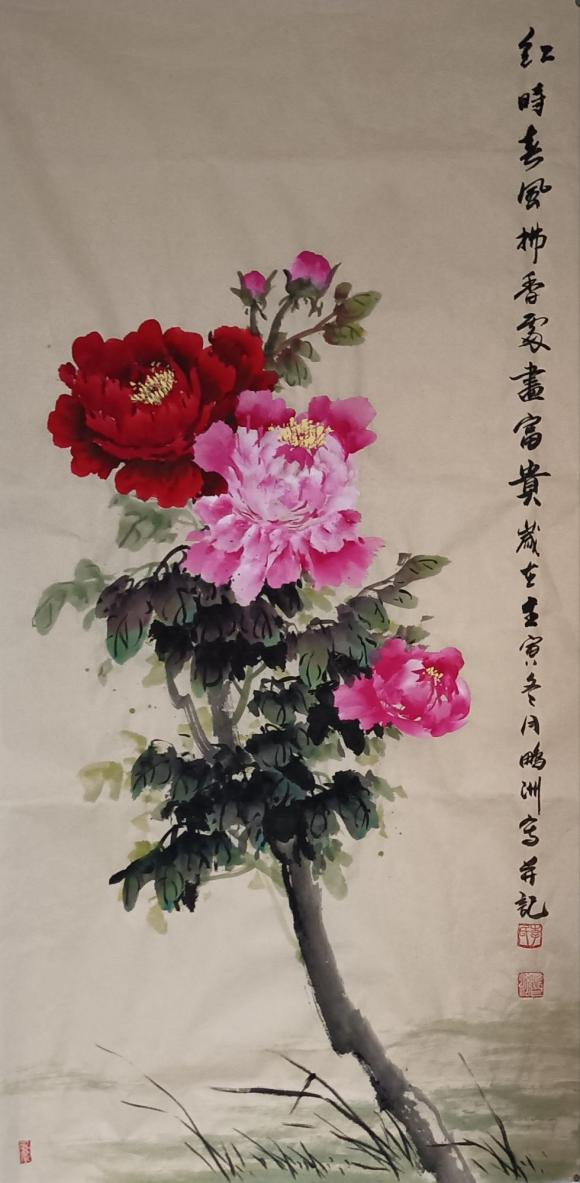 紅時春風拂香處畫富貴歲在壬寅冬月鵬洲寫并記